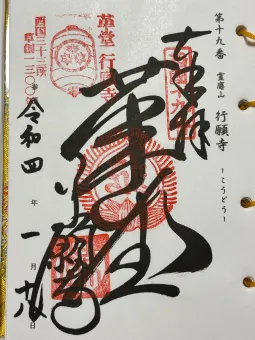 第十九番 霊麀山 行願寺
ーこうどうー
奉拝
革堂
行願寺
革堂 行願寺
西国三十三所
草創一三〇〇年
令和四年一月 日